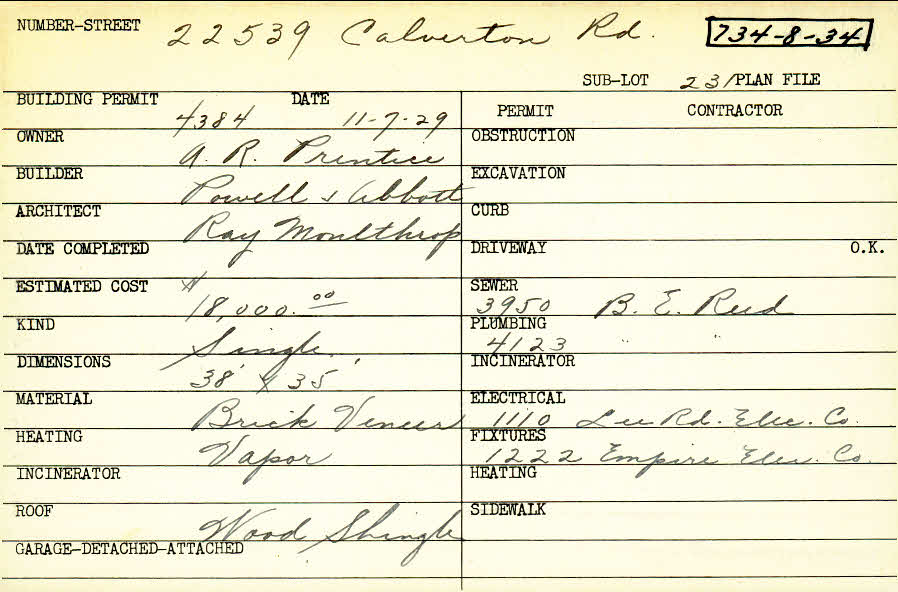 NUMBER-STREET 22539 Calverton Rd. 734-8-34
SUB-LOT 231 PLAN FILE
BUILDING PERMIT 4384 DATE 11-7-29
OWNER A. R. Prentice
BUILDER Powell & Abbott
ARCHITECT Ray Moulthrop
DATE COMPLETED
ESTIMATED COST $18,000.00
KIND Single
DIMENSIONS 38' x 35'
MATERIAL Brick Veneer
HEATING Vapor
INCINERATOR
ROOF Wood Shingle
GARAGE-DETACHED-ATTACHED
PERMIT CONTRACTOR
OBSTRUCTION
EXCAVATION
CURB
DRIVEWAY O.K.
SEWER 3950 B. E. Reed
PLUMBING 4123 " "
INCINERATOR
ELECTRICAL 1110 Lee Rd. Elec. Co.
FIXTURES 1222 Empire Elec. Co.
HEATING
SIDEWALK